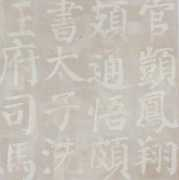 官顗鳳翔
頲通悟頗
書太子洗
王府司馬